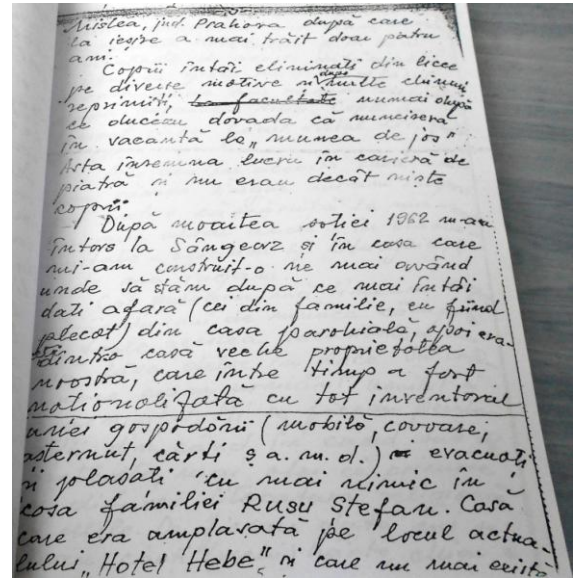 Mislea, jud. Prahova după care
la ieșire a mai trăit doar patru
ani.
Copiii întâi eliminați din licee
pe diverse motive și după multe chinuri
reprimiți, la facultate numai după
ce duceau dovada că munciseră
în vacanță la „munca de jos"
Asta însemna lucru în carieră de
piatră și nu erau decât niște
copii.
După moartea soției 1962 m-am
întors la Sângeorz și în casa care
mi-am construit-o ne mai având
unde să stăm după ce mai întâi
dați afară (cei din familie, eu fiind
plecat) din casa parohială, apoi
dintro casă veche proprietatea
noastră, care între timp a fost
naționalizată cu tot inventarul
unei gospodării (mobilă, covoare,
așternut, cărți ș.a.m.d.) evacuați
și plasați cu mai nimic în
casa familiei Rusu Ștefan. Casă
care era amplasată pe locul actua-
lului „Hotel Hebe" și care nu mai există